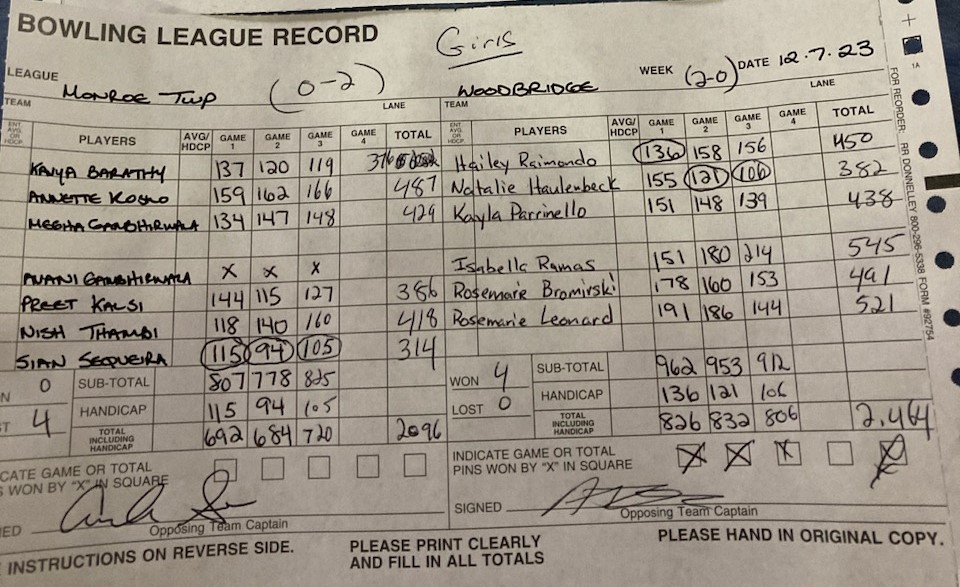 BOWLING LEAGUE RECORD Girls
LEAGUE WEEK DATE 12.7.23
MONROE TWP (0-2) WOODBRIDGE (2-0)
TEAM LANE TEAM LANE
ENT. AVG. OR HDCP. PLAYERS AVG/HDCP GAME 1 GAME 2 GAME 3 GAME 4 TOTAL ENT. AVG. OR HDCP. PLAYERS AVG/HDCP GAME 1 GAME 2 GAME 3 GAME 4 TOTAL
KANYA BARATHY 137 120 119 376 Hailey Raimondo 136 158 156 450
ANNETTE 159 162 166 487 Natalie Haulenbeck 155 121 106 382
MEGHA GAMBHIRWALA 134 147 148 429 Kayla Parrinello 151 148 139 438
AVANI GAMBHIRWALA X X X Isabella Ramas 151 180 214 545
PREET KALSI 144 115 127 386 Rosemarie Bromirski 178 160 153 491
NISH THAMBI 118 140 160 418 Rosemarie Leonard 191 186 144 521
SIAN SEQUEIRA 115 94 105 314
N 0 SUB-TOTAL 807 778 825 WON 4 SUB-TOTAL 962 953 912
T 4 HANDICAP 115 94 105 LOST 0 HANDICAP 136 121 106
TOTAL INCLUDING HANDICAP 692 684 720 2096 TOTAL INCLUDING HANDICAP 826 832 806 2,464
CATE GAME OR TOTAL INDICATE GAME OR TOTAL
S WON BY "X" IN SQUARE PINS WON BY "X" IN SQUARE X X X X
ED Opposing Team Captain SIGNED Opposing Team Captain
INSTRUCTIONS ON REVERSE SIDE. PLEASE PRINT CLEARLY PLEASE HAND IN ORIGINAL COPY.
AND FILL IN ALL TOTALS
1A
FOR REORDER: RR DONNELLEY 800-296-5338 FORM #92754